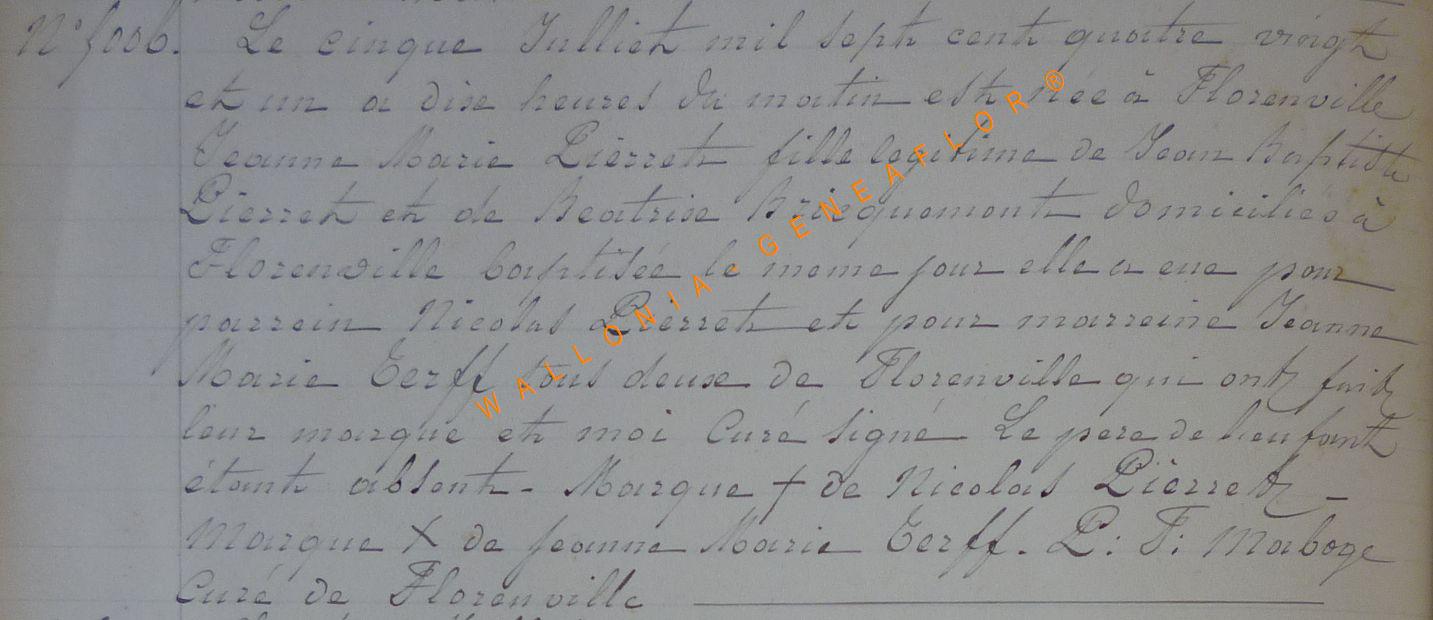 N° 1006. Le cinque Julliet mil sept cent quatre vingt
et un a dix heures du matin est née à Florenville
Jeanne Marie Pierret fille legitime de Jean Baptiste
Pierret et de Beatrise Bricquemont domiciliés à
Florenville baptisée le meme jour elle a eue pour
parrein Nicolas Pierret et pour marreine Jeanne
Marie Terff tous deux de Florenville qui ont fait
leur marque et moi Curé signé Le pere de l'enfant
étant absent - Marque + de Nicolas Pierret -
Marque X de Jeanne Marie Terff. P: F: Maboge
Curé de Florenville
WALLONIA - GENEAFLOR ®